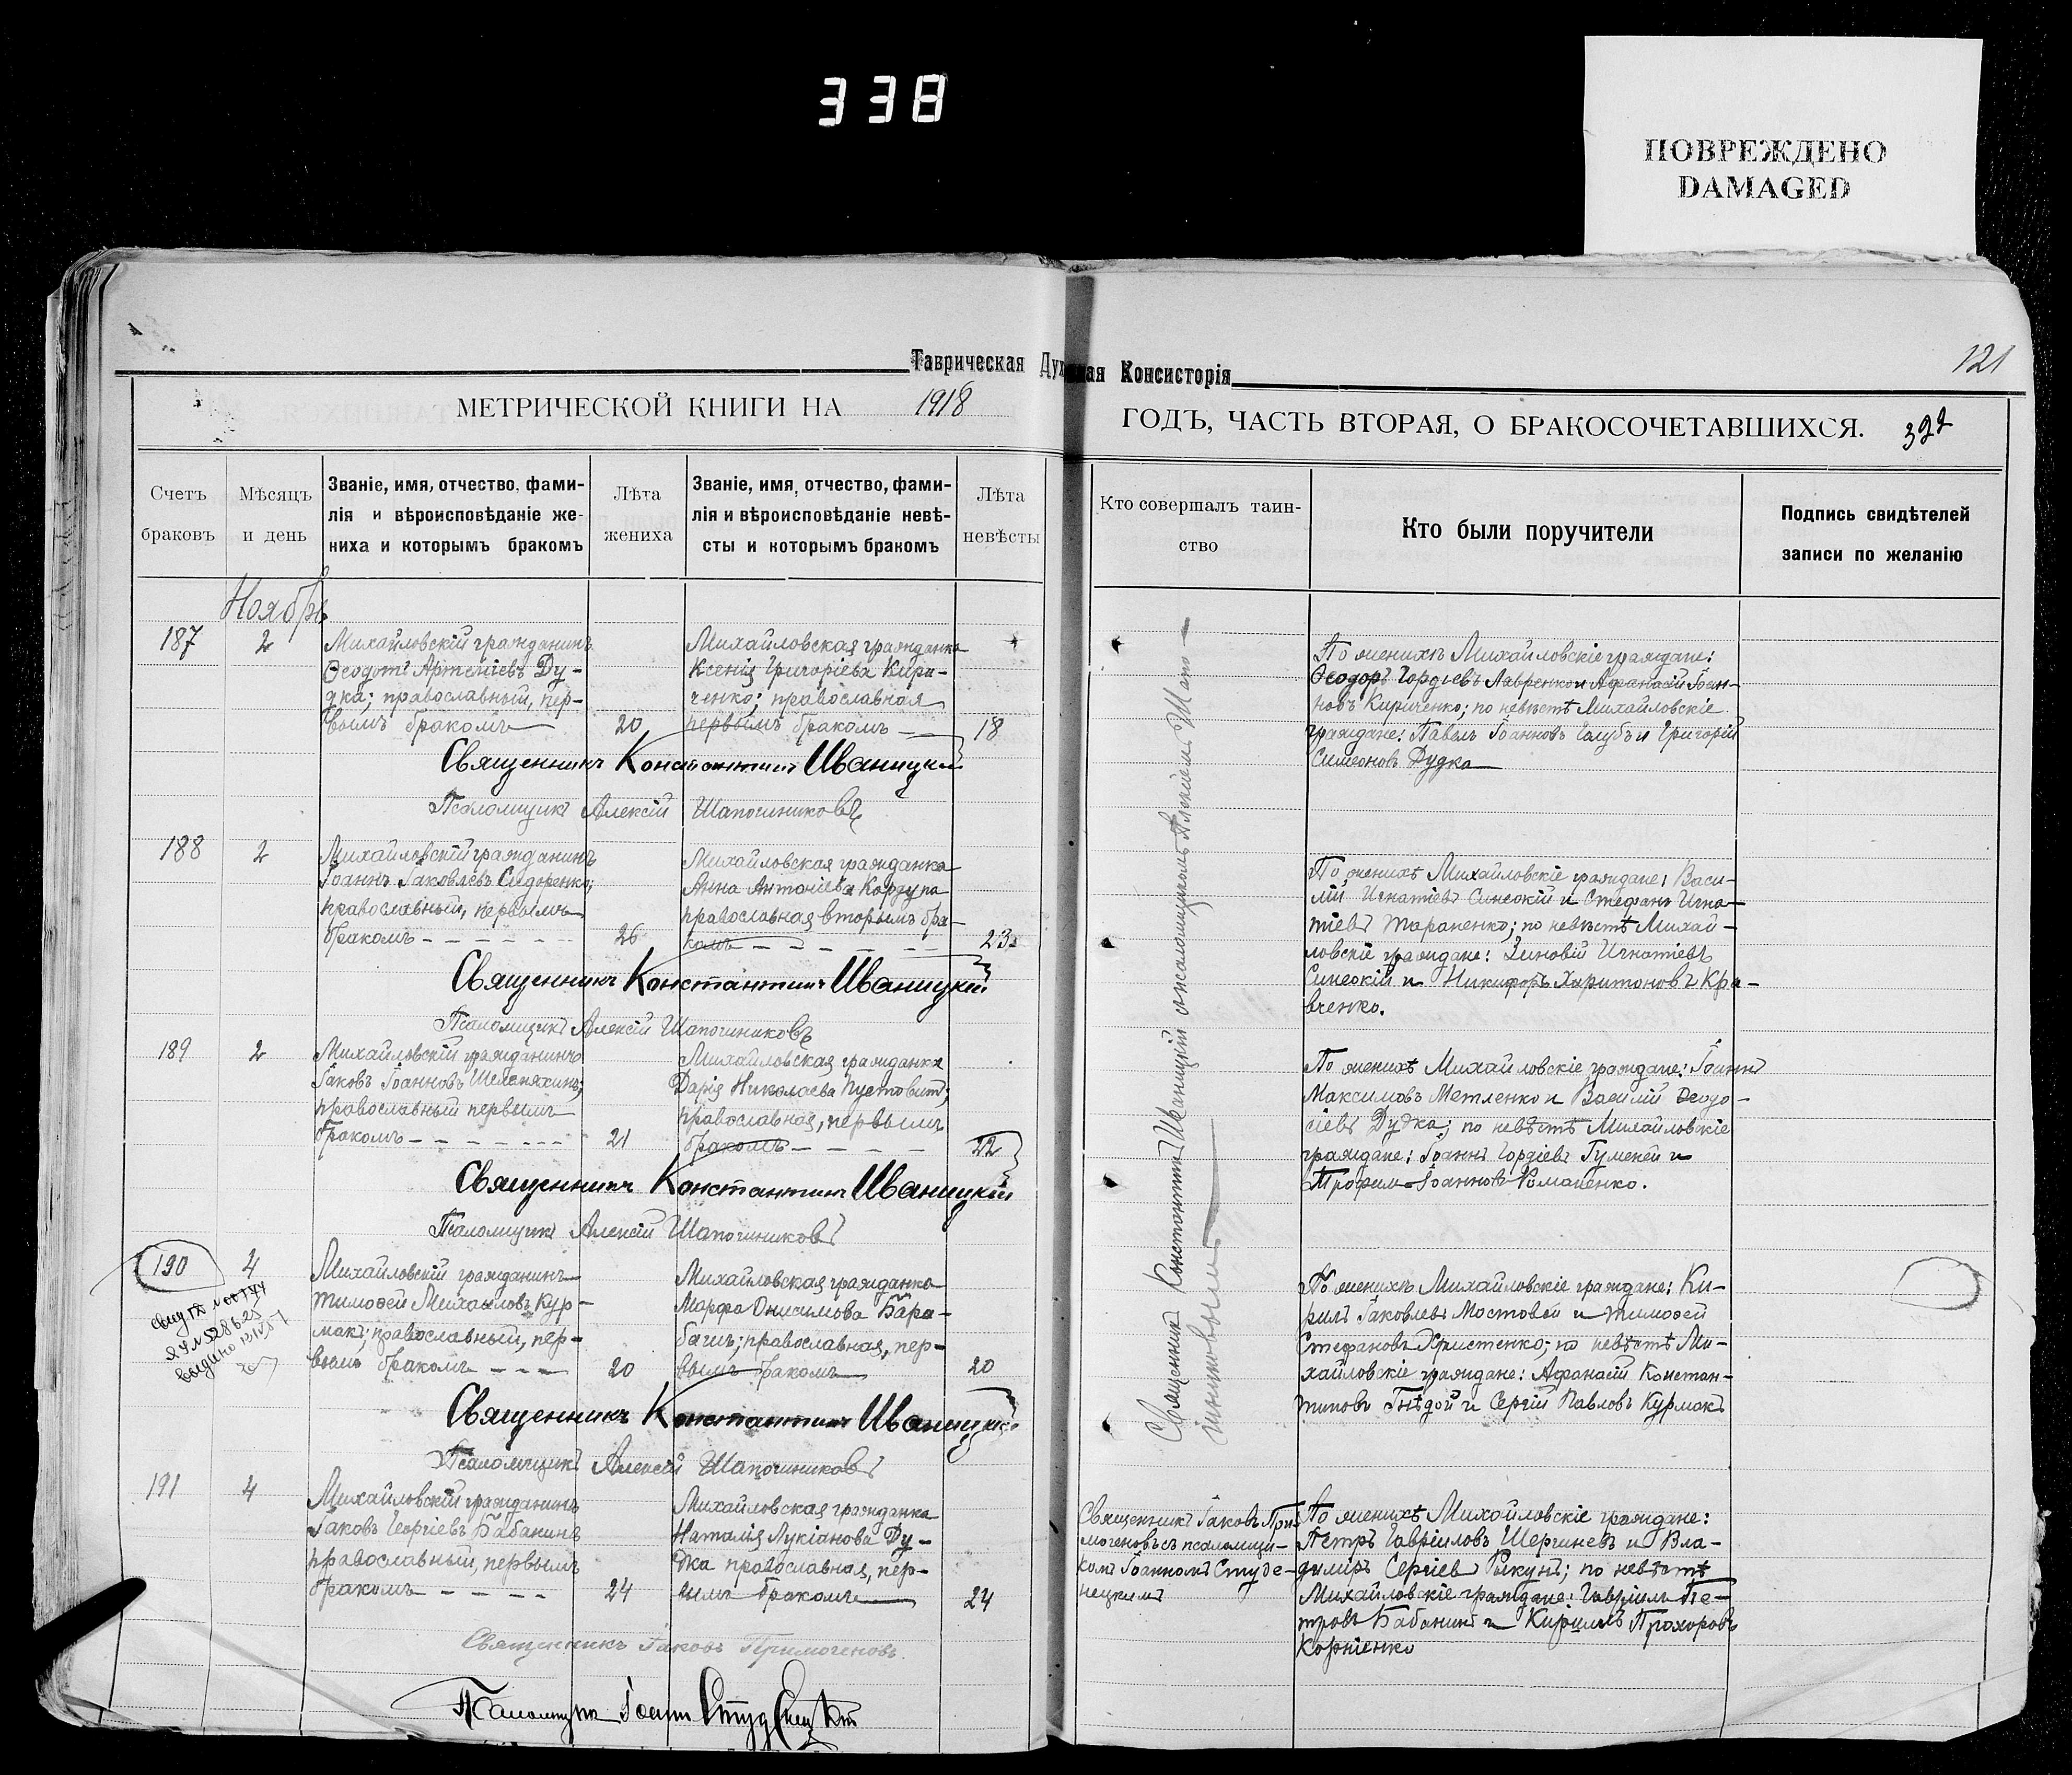 338
ПОВРЕЖДЕНО
DAMAGED
Таврическая Духовная Консисторія
121
МЕТРИЧЕСКОЙ КНИГИ НА 1918
ГОДЪ, ЧАСТЬ ВТОРАЯ, О БРАКОСОЧЕТАВШИХСЯ.
Счетъ
браковъ
Мѣсяцъ
и день
Званіе, имя, отчество, фами-
лія и вѣроисповѣданіе же-
ниха и которымъ бракомъ
Лѣта
жениха
Званіе, имя, отчество, фами-
лія и вѣроисповѣданіе невѣ-
сты и которымъ бракомъ
Лѣта
невѣсты
Кто совершалъ таин-
ство
Кто были поручители
Подпись свидѣтелей
записи по желанію
Ноябрь
187
2
Михайловскій гражданинъ
Ѳеодотъ Артеміевъ Ду-
дка; православный, пер-
вымъ бракомъ
20
Михайловская гражданка
Ксенія Григоріева Кири-
ченко; православная
первымъ бракомъ
18
Священникъ Константинъ Иваницкій
Псаломщикъ Алексій Шапошниковъ
По женихѣ Михайловскіе граждане:
Ѳеодоръ Гордіевъ Лавренко и Аѳанасій Іоан-
новъ Кириченко; по невѣстѣ Михайловскіе
граждане: Павелъ Іоанновъ Голубъ и Григорій
Симеоновъ Дудка
188
2
Михайловскій гражданинъ
Іоаннъ Іаковлевъ Сидоренко;
православный, первымъ
бракомъ
26
Михайловская гражданка
Анна Антоніева Корзупа
православная вторымъ бра-
комъ
23
Священникъ Константинъ Иваницкій
Псаломщикъ Алексій Шапошниковъ
По женихѣ Михайловскіе граждане: Васи-
лій Игнатіевъ Синеокій и Стефанъ Игна-
тіевъ Тараненко; по невѣстѣ Михай-
ловскіе граждане: Зиновій Игнатіевъ
Синеокій и Никифоръ Харитоновъ Кра-
вченко.
189
2
Михайловскій гражданинъ
Іаковъ Іоанновъ Шелепяхинъ;
православный первымъ
бракомъ
21
Михайловская гражданка
Дарія Николаева Пустовитъ;
православная, первымъ
бракомъ
22
Священникъ Константинъ Иваницкій
Псаломщикъ Алексій Шапошниковъ
По женихѣ Михайловскіе граждане: Іоаннъ
Максимовъ Метленко и Василій Ѳеодо-
сіевъ Дудка; по невѣстѣ Михайловскіе
граждане: Іоаннъ Гордіевъ Гуменей и
Трофимъ Іоанновъ Романенко.
Священникъ Константинъ Иваницкій съ псаломщикомъ Алексіемъ Шапо-
шниковымъ
190
4
Михайловскій гражданинъ
Тимоѳей Михаиловъ Кур-
макъ; православный, пер-
вымъ бракомъ
20
Михайловская гражданка
Марфа Онисимова Бара-
башъ; православная, пер-
вымъ бракомъ
20
Священникъ Константинъ Иваницкій
Псаломщикъ Алексій Шапошниковъ
По женихѣ Михайловскіе граждане: Ки-
рилъ Іаковлевъ Мостовой и Тимоѳей
Стефановъ Христенко; по невѣстѣ Ми-
хайловскіе граждане: Аѳанасій Констан-
тиновъ Гнѣдой и Сергій Павловъ Курмакъ
191
4
Михайловскій гражданинъ
Іаковъ Георгіевъ Бабанинъ
православный, первымъ
бракомъ
24
Михайловская гражданка
Наталія Лукіанова Ду-
дка православная, пер-
вымъ бракомъ
24
Священникъ Іаковъ При-
могеновъ съ псаломщи-
комъ Іоанномъ Студе-
нецкимъ
По женихѣ Михайловскіе граждане:
Петръ Гавріиловъ Шергиневъ и Вла-
диміръ Сергіевъ Рикунъ; по невѣстѣ
Михайловскіе граждане: Гавріилъ Пе-
тровъ Бабанинъ и Кириллъ Прохоровъ
Корніенко
Священникъ Іаковъ Примогеновъ.
Псаломщикъ Іоаннъ Студенецкій